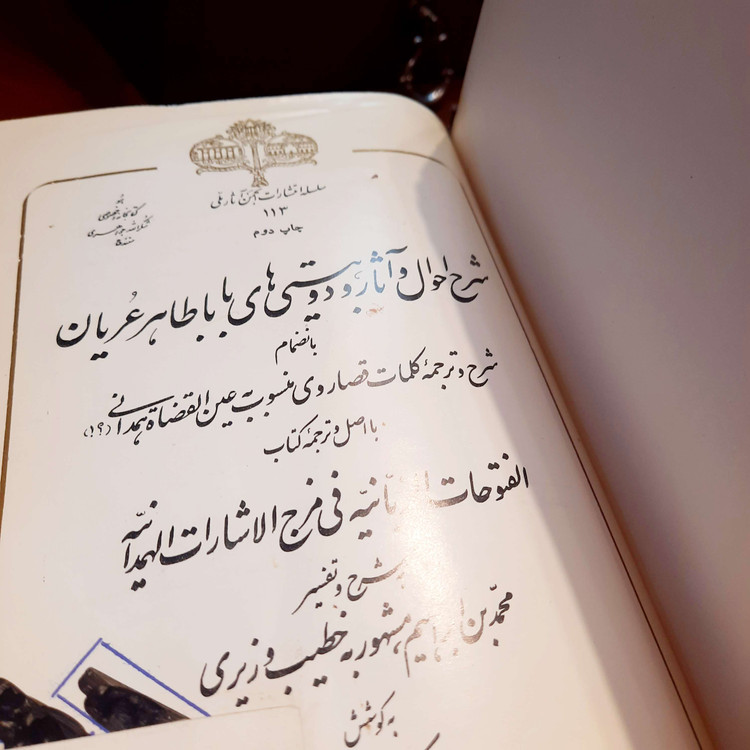 سلسله انتشارات انجمن آثار ملی
۱۱۳
چاپ دوم
شرح احوال و آثار و دوبیتی های باباطاهر عُریان
بانضمام
شرح و ترجمهٔ کلمات قصار وی منسوب به عین القضاة همدانی (؟!)
با اصل و ترجمهٔ کتاب
الفتوحات الربّانیّه فی مزج الاشارات الهمدانیّه
به شرح و تفسیر
محمّد بن ابراهیم، مشهور به خطیب وزیری
به کوشش